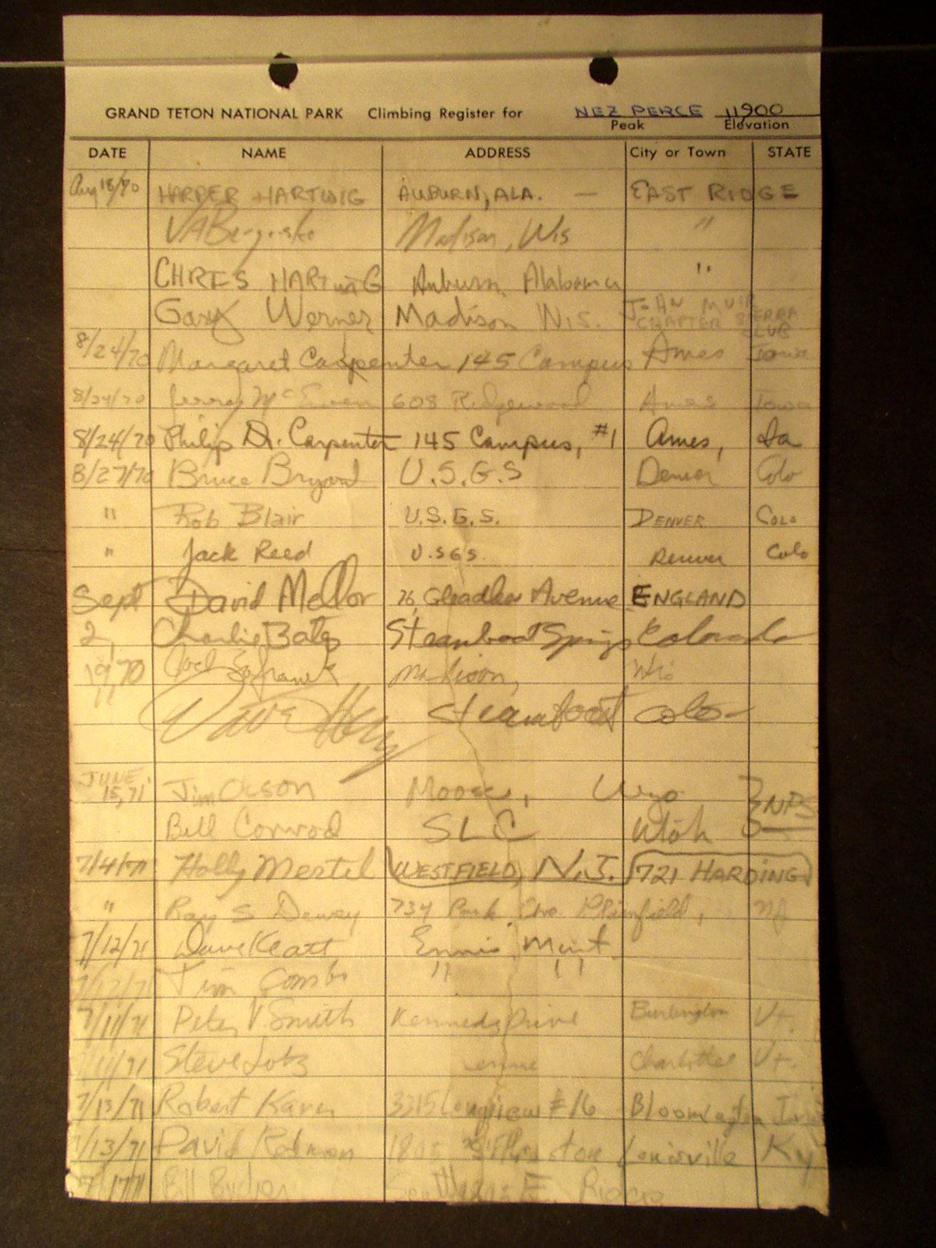 GRAND TETON NATIONAL PARK Climbing Register for NEZ PERCE 11900
Peak Elevation
DATE NAME ADDRESS City or Town STATE
Aug 18/70 HARPER HARTWIG AUBURN, ALA. — EAST RIDGE
Madison, Wis "
CHRIS HARTWIG Auburn Alabama "
Gary Werner Madison Wis. JOHN MUIR
CHAPTER SIERRA
CLUB
8/24/70 Margaret Carpenter 145 Campus Ames Iowa
8/24/70 Jerry McEwen 608 Ridgewood Ames Iowa
8/24/70 Philip D. Carpenter 145 Campus, #1 Ames, Ia
8/27/70 Bruce Bryant U.S.G.S Denver Colo
" Rob Blair U.S.G.S. DENVER COLO
" Jack Reed U.S.G.S. Denver Colo
Sept David Mellor 76, Avenue ENGLAND
2, Charlie Bates Steamboat Springs Colorado
1970 Joel Madison, Wis
Dave Steamboat Colo
JUNE
15, 71 Jim Olson Moose, Wyo } NPS
Bill Conrod SLC Utah
7/4/71 Holly Mertel WESTFIELD, N.J. 721 HARDING
" Ray S Dewey 734 Park Ave. Plainfield, NJ
7/12/71 Dave Keatt Ennis, Mont.
7/12/71 Tim Combs " "
7/11/71 Peter V Smith Kennedy Drive Burlington Vt.
7/11/71 Steve Lotz Charlotte Vt.
7/13/71 Robert Karen 3215 Longview #16 Bloomington
7/13/71 David 1805 Louisville Ky
Bill